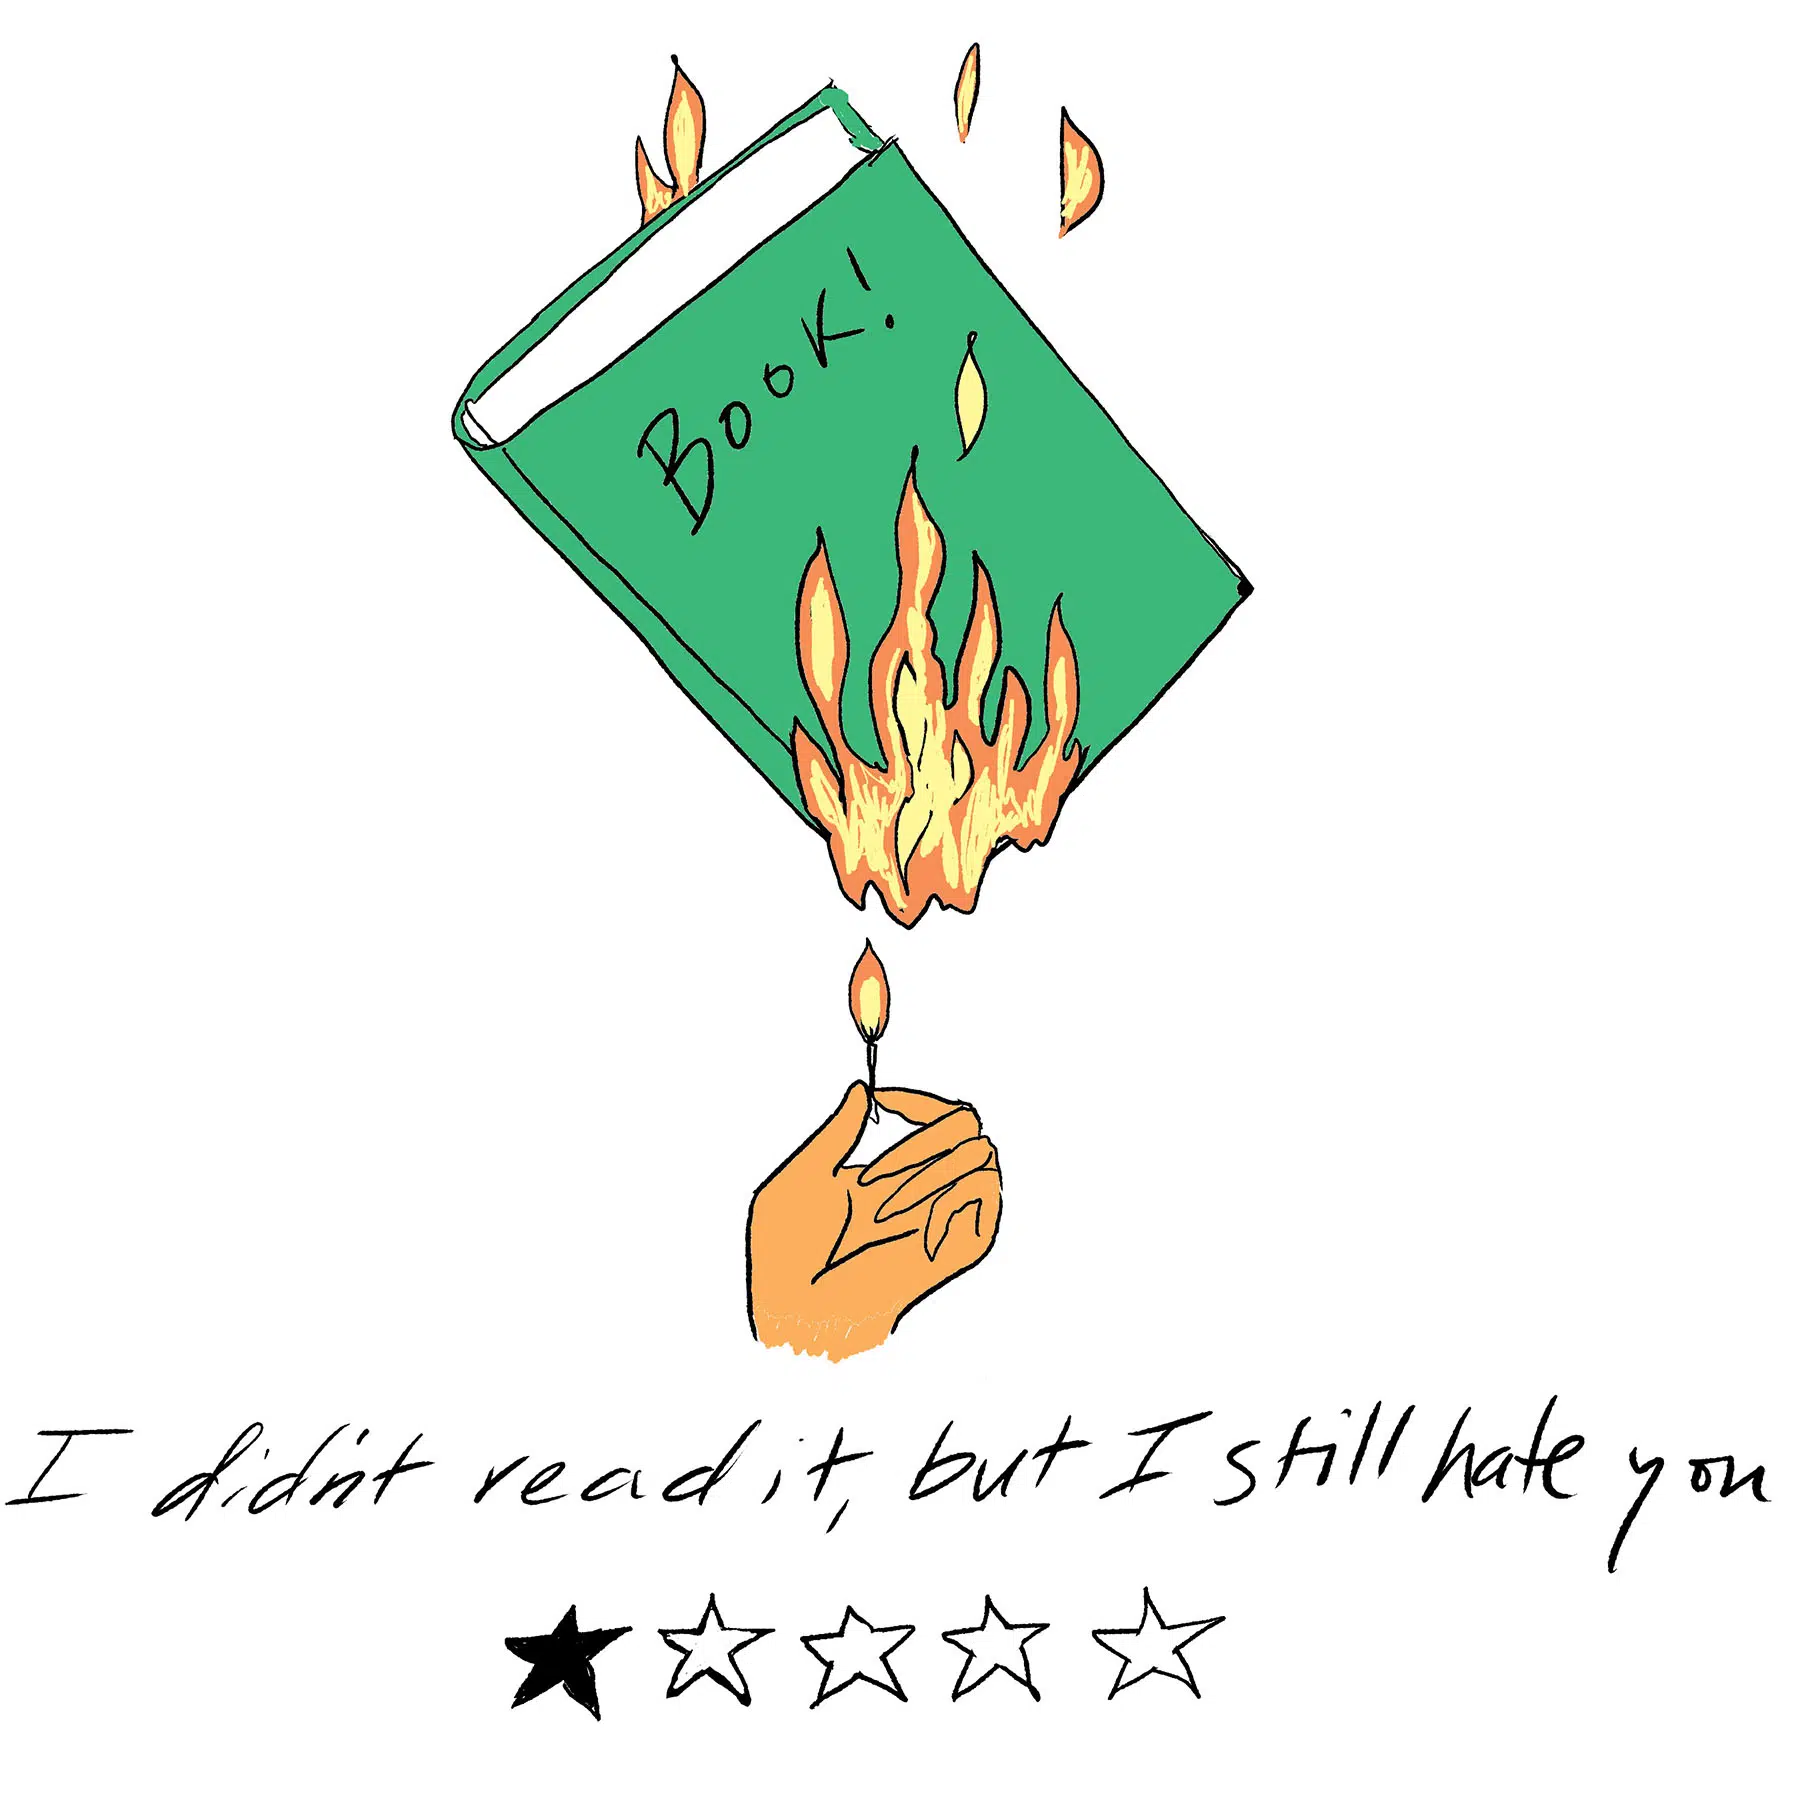 Book!
I didn't read it, but I still hate you